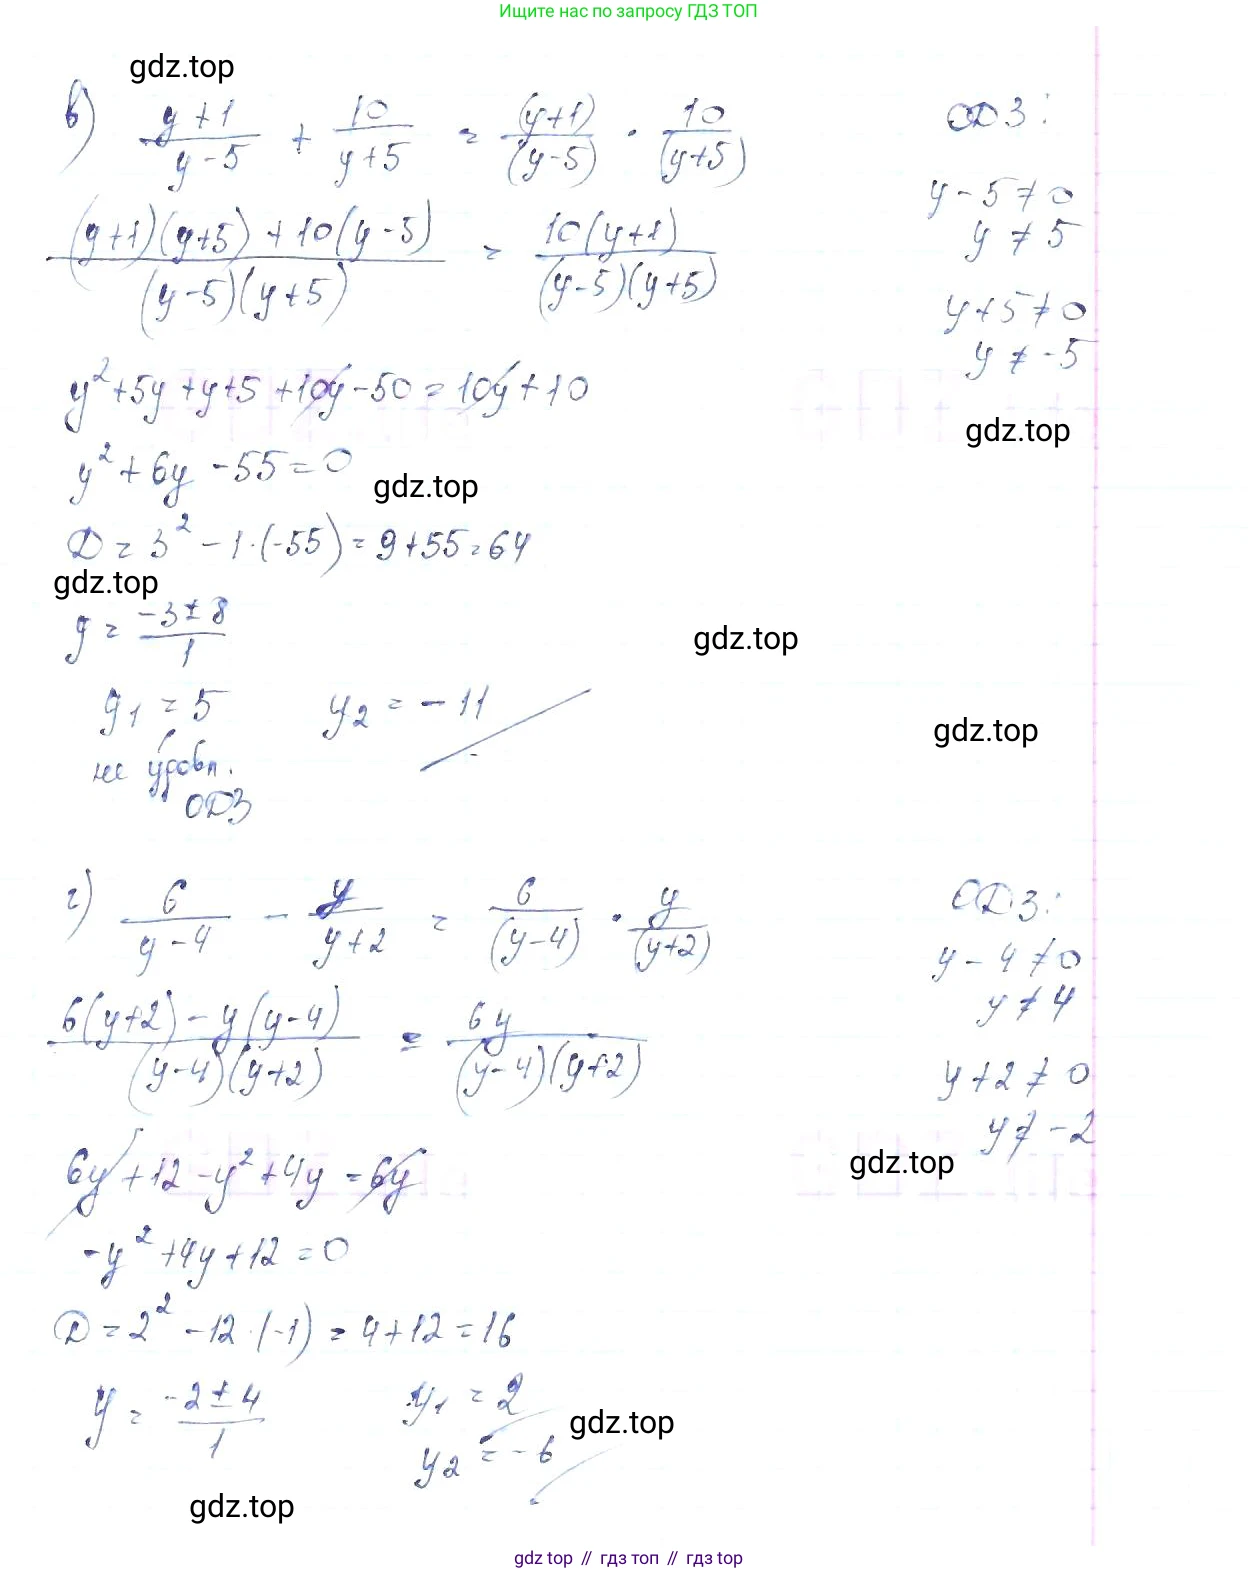 Ищите нас по запросу ГДЗ ТОП
gdz.top
в) (y+1)/(y-5) + 10/(y+5) = (y+1)/(y-5) · 10/(y+5)
ОДЗ:
y-5≠0
y≠5
((y+1)(y+5)+10(y-5))/((y-5)(y+5)) = 10(y+1)/((y-5)(y+5))
y+5≠0
y≠-5
y²+5y+y+5+10y-50=10y+10
gdz.top
y²+6y-55=0
gdz.top
D=3²-1·(-55)=9+55=64
gdz.top
y=(-3±8)/1
gdz.top
y₁=5 y₂=-11
gdz.top
не удовл.
ОДЗ
г) 6/(y-4) - y/(y+2) = 6/(y-4) · y/(y+2)
ОДЗ:
y-4≠0
y≠4
(6(y+2)-y(y-4))/((y-4)(y+2)) = 6y/((y-4)(y+2))
y+2≠0
y≠-2
6y+12-y²+4y=6y
gdz.top
-y²+4y+12=0
D=2²-12·(-1)=4+12=16
y=(-2±4)/1 y₁=2
gdz.top
y₂=-6
gdz.top
gdz top // гдз топ // gdz top